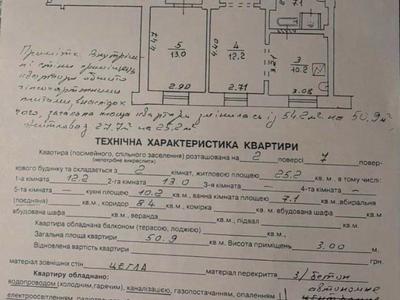 7.1
4.47
5
13.0
4.40
4
12.2
3.21
3
10.2
2.90
2.71
3.08
Примітка. Внутрішні
стіни приміщень
квартири обшито
гіпсокартонними
плитами, внаслідок
чого, загальна площа квартири зменшилась із 54.2 м² на 50.9 м²
житлова з 27.7 м² на 25.2 м²
ТЕХНІЧНА ХАРАКТЕРИСТИКА КВАРТИРИ
Квартира (посімейного, спільного заселення) розташована на 2 поверсі 7 повер-
(непотрібне викреслити)
хового будинку та складається з 2 кімнат, житловою площею 25.2 кв. м, в тому числі:
1-а кімната 12.2 2-га кімната 13.0 3-я кімната – 4-та кімната –
5-та кімната – кухня площею 10.2 кв. м, ванна кімната площею 7.1 кв. м, вбиральня
(поєднана) кв. м, коридор 8.4 кв. м, комірка кв. м, вбудована шафа
вбудована шафа кв. м, веранда кв. м, підвал кв. м.
Квартира обладнана балконом (терасою, лоджією) кв. м.
Загальна площа квартири 50.9 кв. м. Висота приміщень 3.00 м.
Відновлена вартість квартири грн.
матеріал зовнішніх стін цегла матеріал перекриття з/бетон
Квартиру обладнано: автономне
водопроводом (холодним, гарячим), каналізацією, газопостачанням, опаленням
електроосвітленням